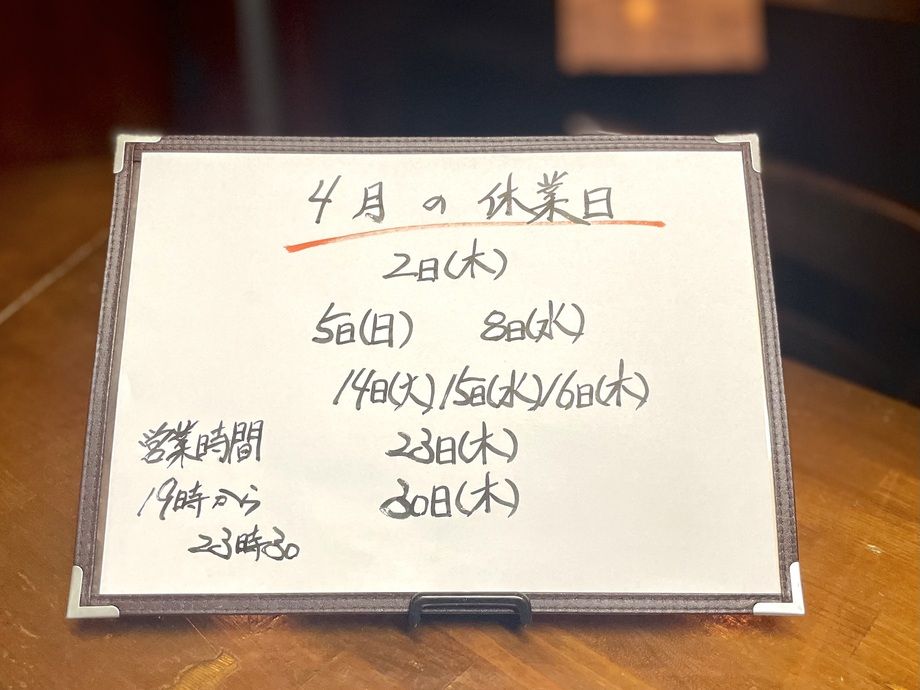 4月の休業日
2日(木)
5日(日) 8日(水)
14日(火)15日(水)16日(木)
23日(木)
30日(木)
営業時間
19時から
23時30